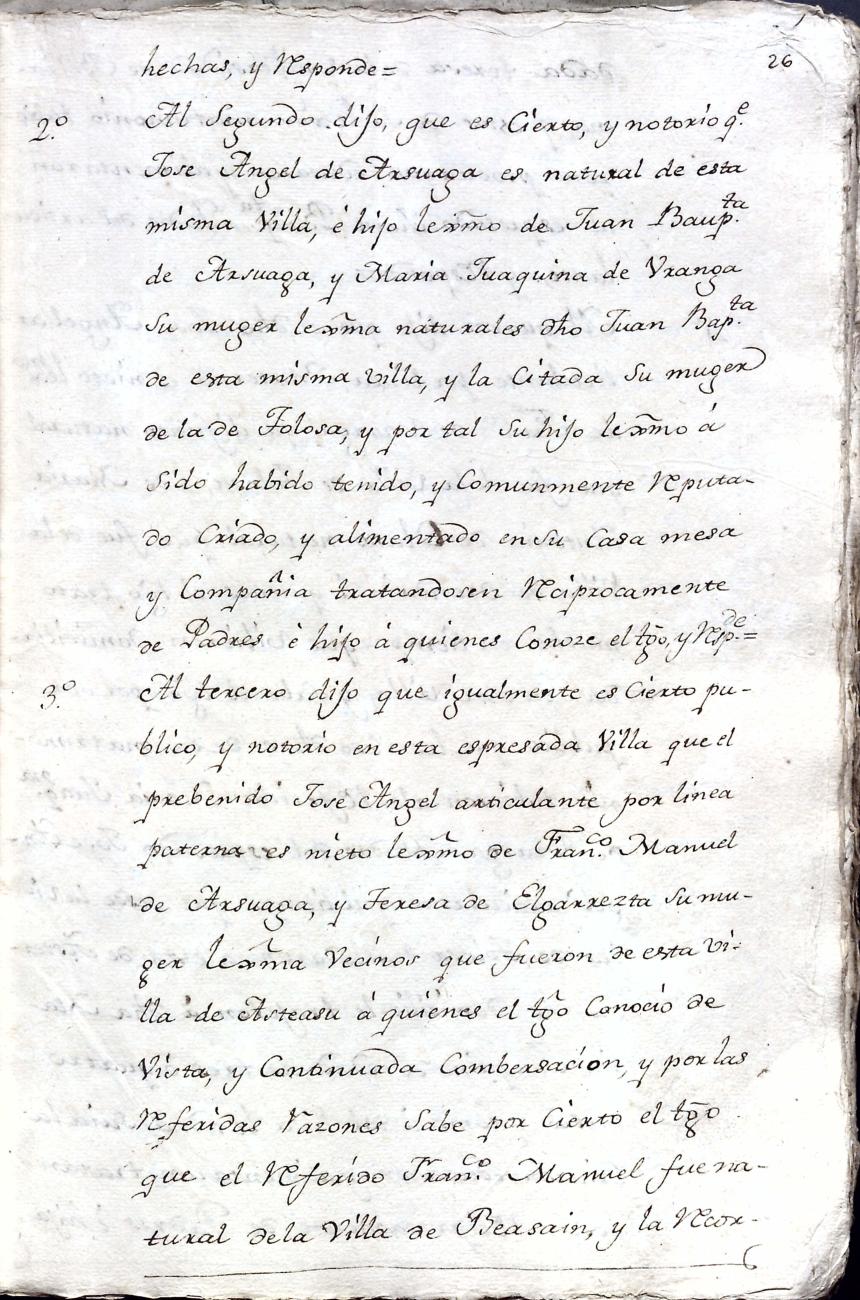 26
hechas, y Responde=
2.º Al Segundo dijo, que es Cierto, y notorio q.e
Jose Angel de Arsuaga es natural de esta
misma Villa, é hijo lexmo de Juan Baup.ta
de Arsuaga, y Maria Juaquina de Vranga
su muger lexma naturales dho Juan Bap.ta
de esta misma villa, y la Citada su muger
de la de Tolosa, y por tal su hijo lexmo á
sido habido tenido, y Comunmente Reputa-
do Criado, y alimentado en su Casa mesa
y Compañia tratandosen Reciprocamente
de Padres é hijo á quienes Conoze el tgo, y Resp.de=
3.º Al tercero dijo que igualmente es Cierto pu-
blico, y notorio en esta espresada Villa que el
prebenido Jose Angel articulante por linea
paterna es nieto lexmo de Fran.co Manuel
de Arsuaga, y Teresa de Elgarrezta su mu-
ger lexma Vecinos que fueron de esta Vi-
lla de Asteasu á quienes el tgo Conocio de
Vista, y Continuada Combersacion, y por las
Referidas Razones Sabe por Cierto el tgo
que el Referido Fran.co Manuel fue na-
tural de la Villa de Beasain, y la Recor-